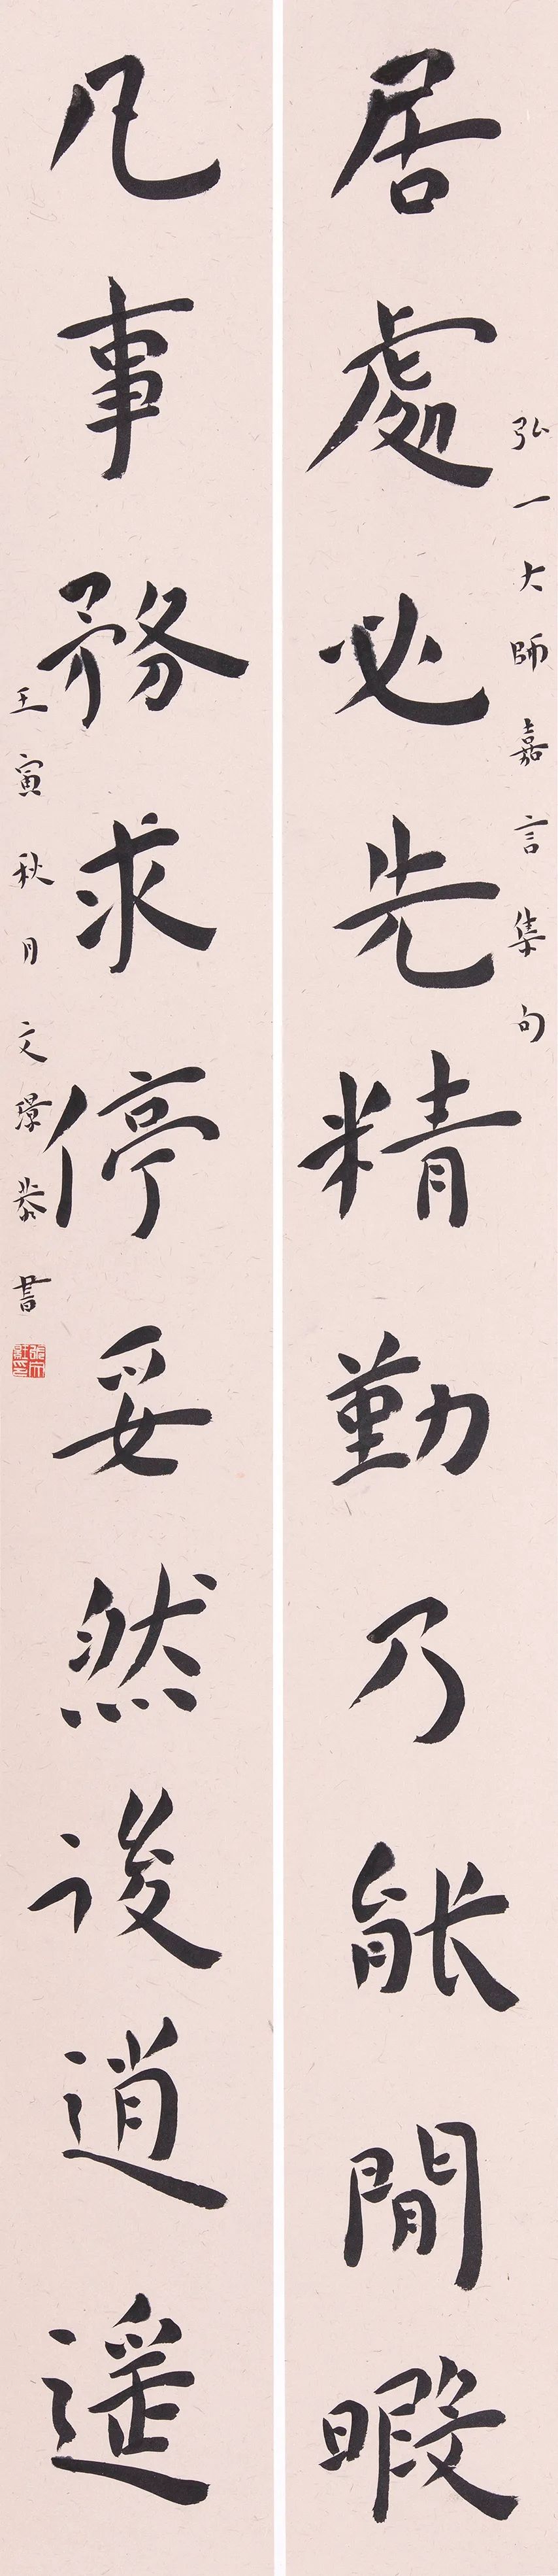 弘一大師嘉言集句
居處必先精勤乃能閒暇
凡事務求停妥然後逍遙
壬寅秋月文恭書